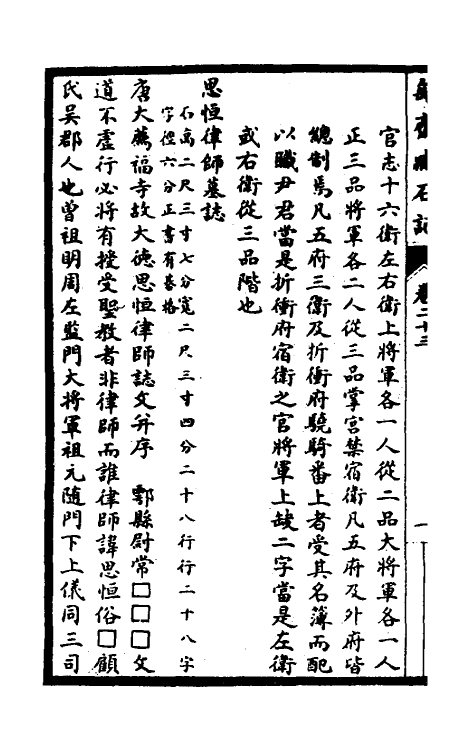 官志十六衛左右衛上將軍各一人從二品大將軍各一人
正三品將軍各二人從三品掌宮禁宿衛凡五府及外府皆
總制焉凡五府三衛及折衝府驍騎番上者受其名簿而配
以職尹君當是折衝府宿衛之官將軍上缺二字當是左衛
或右衛從三品階也
思恒律師墓誌
石高二尺三寸七分寬二尺三寸四分二十八行行二十八字
字徑六分正書有棊格
唐大薦福寺故大德思恒律師誌文并序 鄠縣尉常□□□文
道不虛行必將有授受聖教者非律師而誰律師諱思恒俗□顧
氏吳郡人也曾祖明周左監門大將軍祖元隨門下上儀同三司